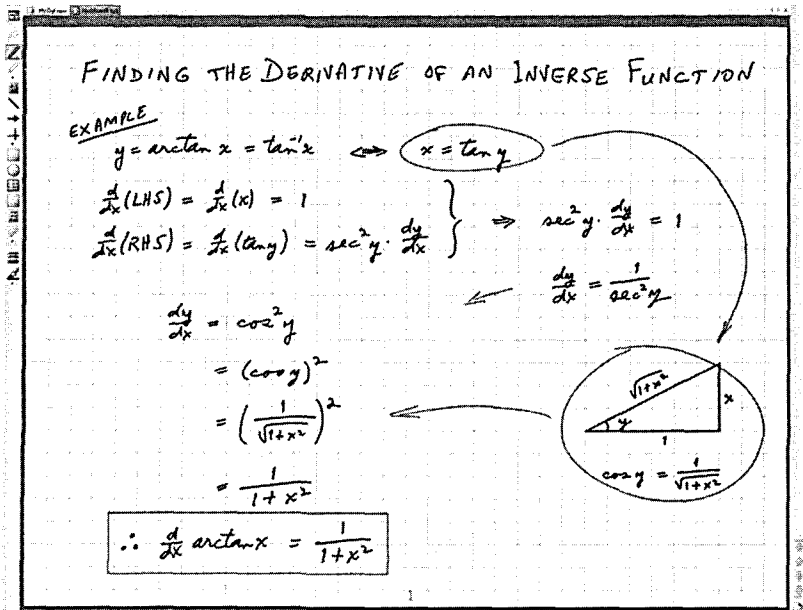 FINDING THE DERIVATIVE OF AN INVERSE FUNCTION
EXAMPLE
y = arctan x = tan⁻¹x ⟺ x = tan y
d/dx (LHS) = d/dx (x) = 1
d/dx (RHS) = d/dx (tan y) = sec²y · dy/dx } ⇒ sec²y · dy/dx = 1
dy/dx = 1/sec²y
dy/dx = cos²y
= (cos y)²
= (1/√(1+x²))²
= 1/(1+x²)
√(1+x²)
x
y
1
cos y = 1/√(1+x²)
∴ d/dx arctan x = 1/(1+x²)
1